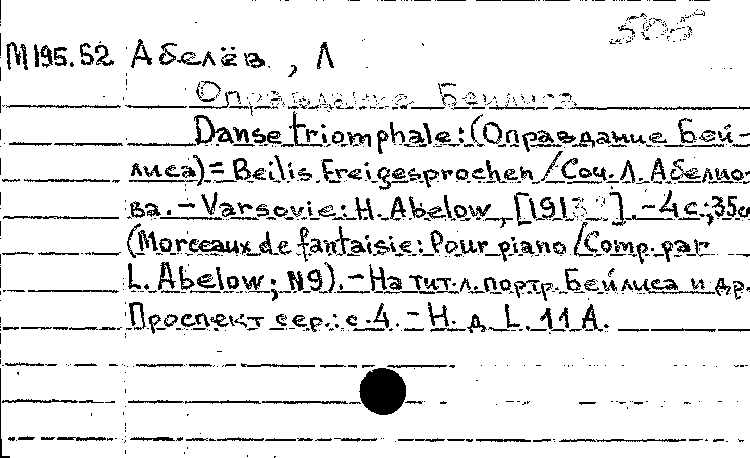 505
М195.52 Абелёв, Л
Оправдание Бейлиса
Danse triomphale: (Оправдание Бей-
лиса) = Beilis Freigesprochen / Соч. Л. Абелио-
ва. – Varsovie: H. Abelow, [1913?]. – 4 с.; 35см
(Morceaux de fantaisie: Pour piano / Comp. par
L. Abelow; N9). – На тит. л. портр. Бейлиса и др.
Проспект сер.: с. 4. – Н. д. L. 11 A.